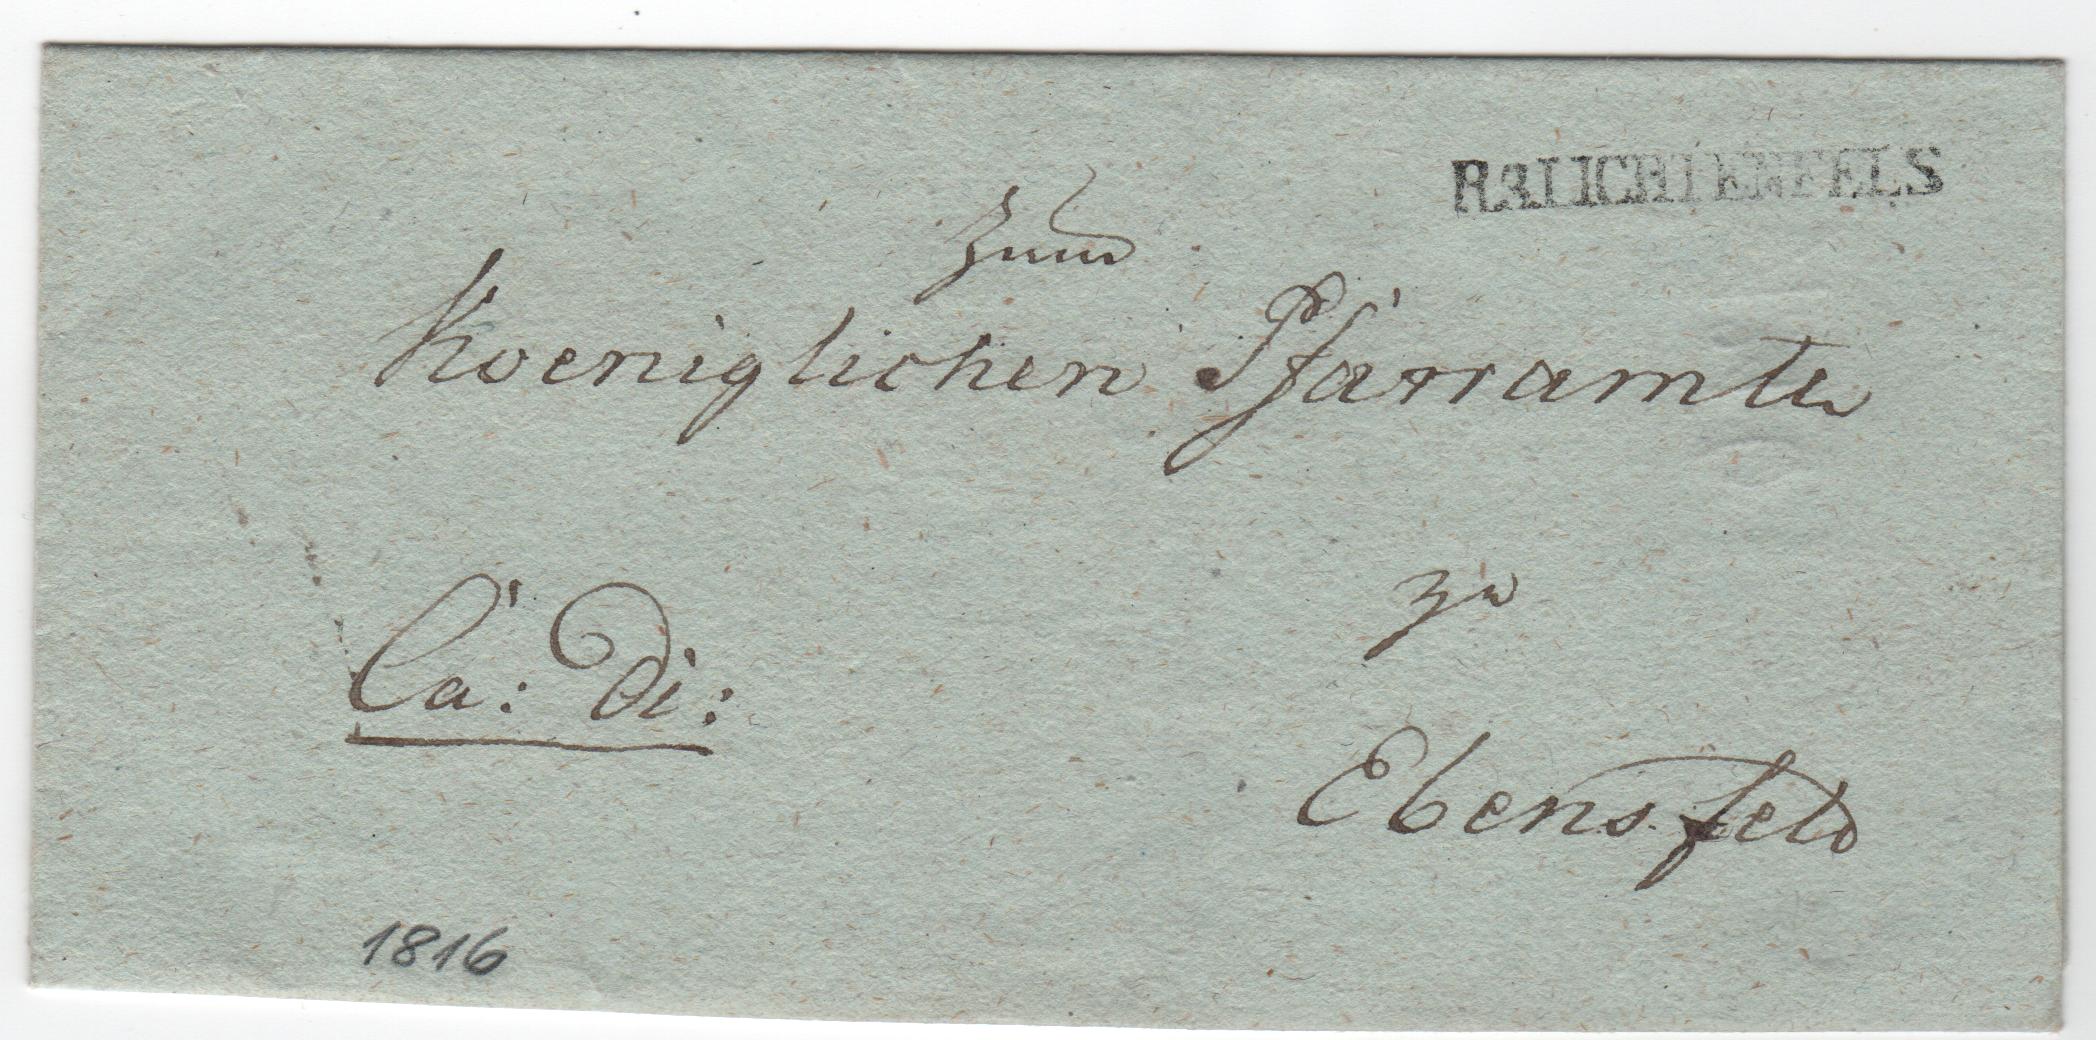 R.3.LICHTENFELS
Zum
Koeniglichen Pfarramte
zu
Ca: Di:
Ebensfeld
1816